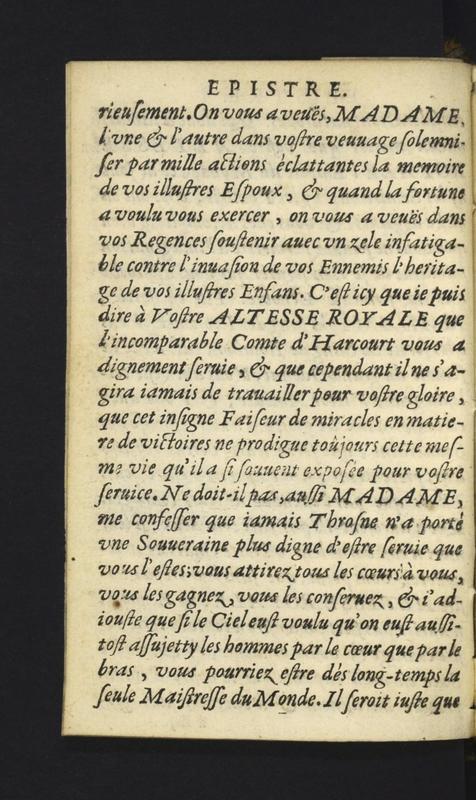 EPISTRE.
rieuſement. On vous a veuës, MADAME,
l'vne & l'autre dans voſtre veuuage ſolemni-
ſer par mille actions éclattantes la memoire
de vos illuſtres Eſpoux, & quand la fortune
a voulu vous exercer, on vous a veuës dans
vos Regences ſouſtenir auec vn zele infatiga-
ble contre l'inuaſion de vos Ennemis l'herita-
ge de vos illuſtres Enfans. C'eſt icy que ie puis
dire à Voſtre ALTESSE ROYALE que
l'incomparable Comte d'Harcourt vous a
dignement ſeruie, & que cependant il ne s'a-
gira iamais de trauailler pour voſtre gloire,
que cet inſigne Faiſeur de miracles en matie-
re de victoires ne prodigue toûjours cette meſ-
me vie qu'il a ſi ſouuent expoſée pour voſtre
ſeruice. Ne doit-il pas, auſſi MADAME,
me confeſſer que iamais Throſne n'a porté
vne Souueraine plus digne d'eſtre ſeruie que
vous l'eſtes; vous attirez tous les cœurs à vous,
vous les gagnez, vous les conſeruez, & i'ad-
iouſte que ſi le Ciel euſt voulu qu'on euſt auſſi-
toſt aſſujetty les hommes par le cœur que par le
bras, vous pourriez eſtre dés long-temps la
ſeule Maiſtreſſe du Monde. Il ſeroit iuſte que